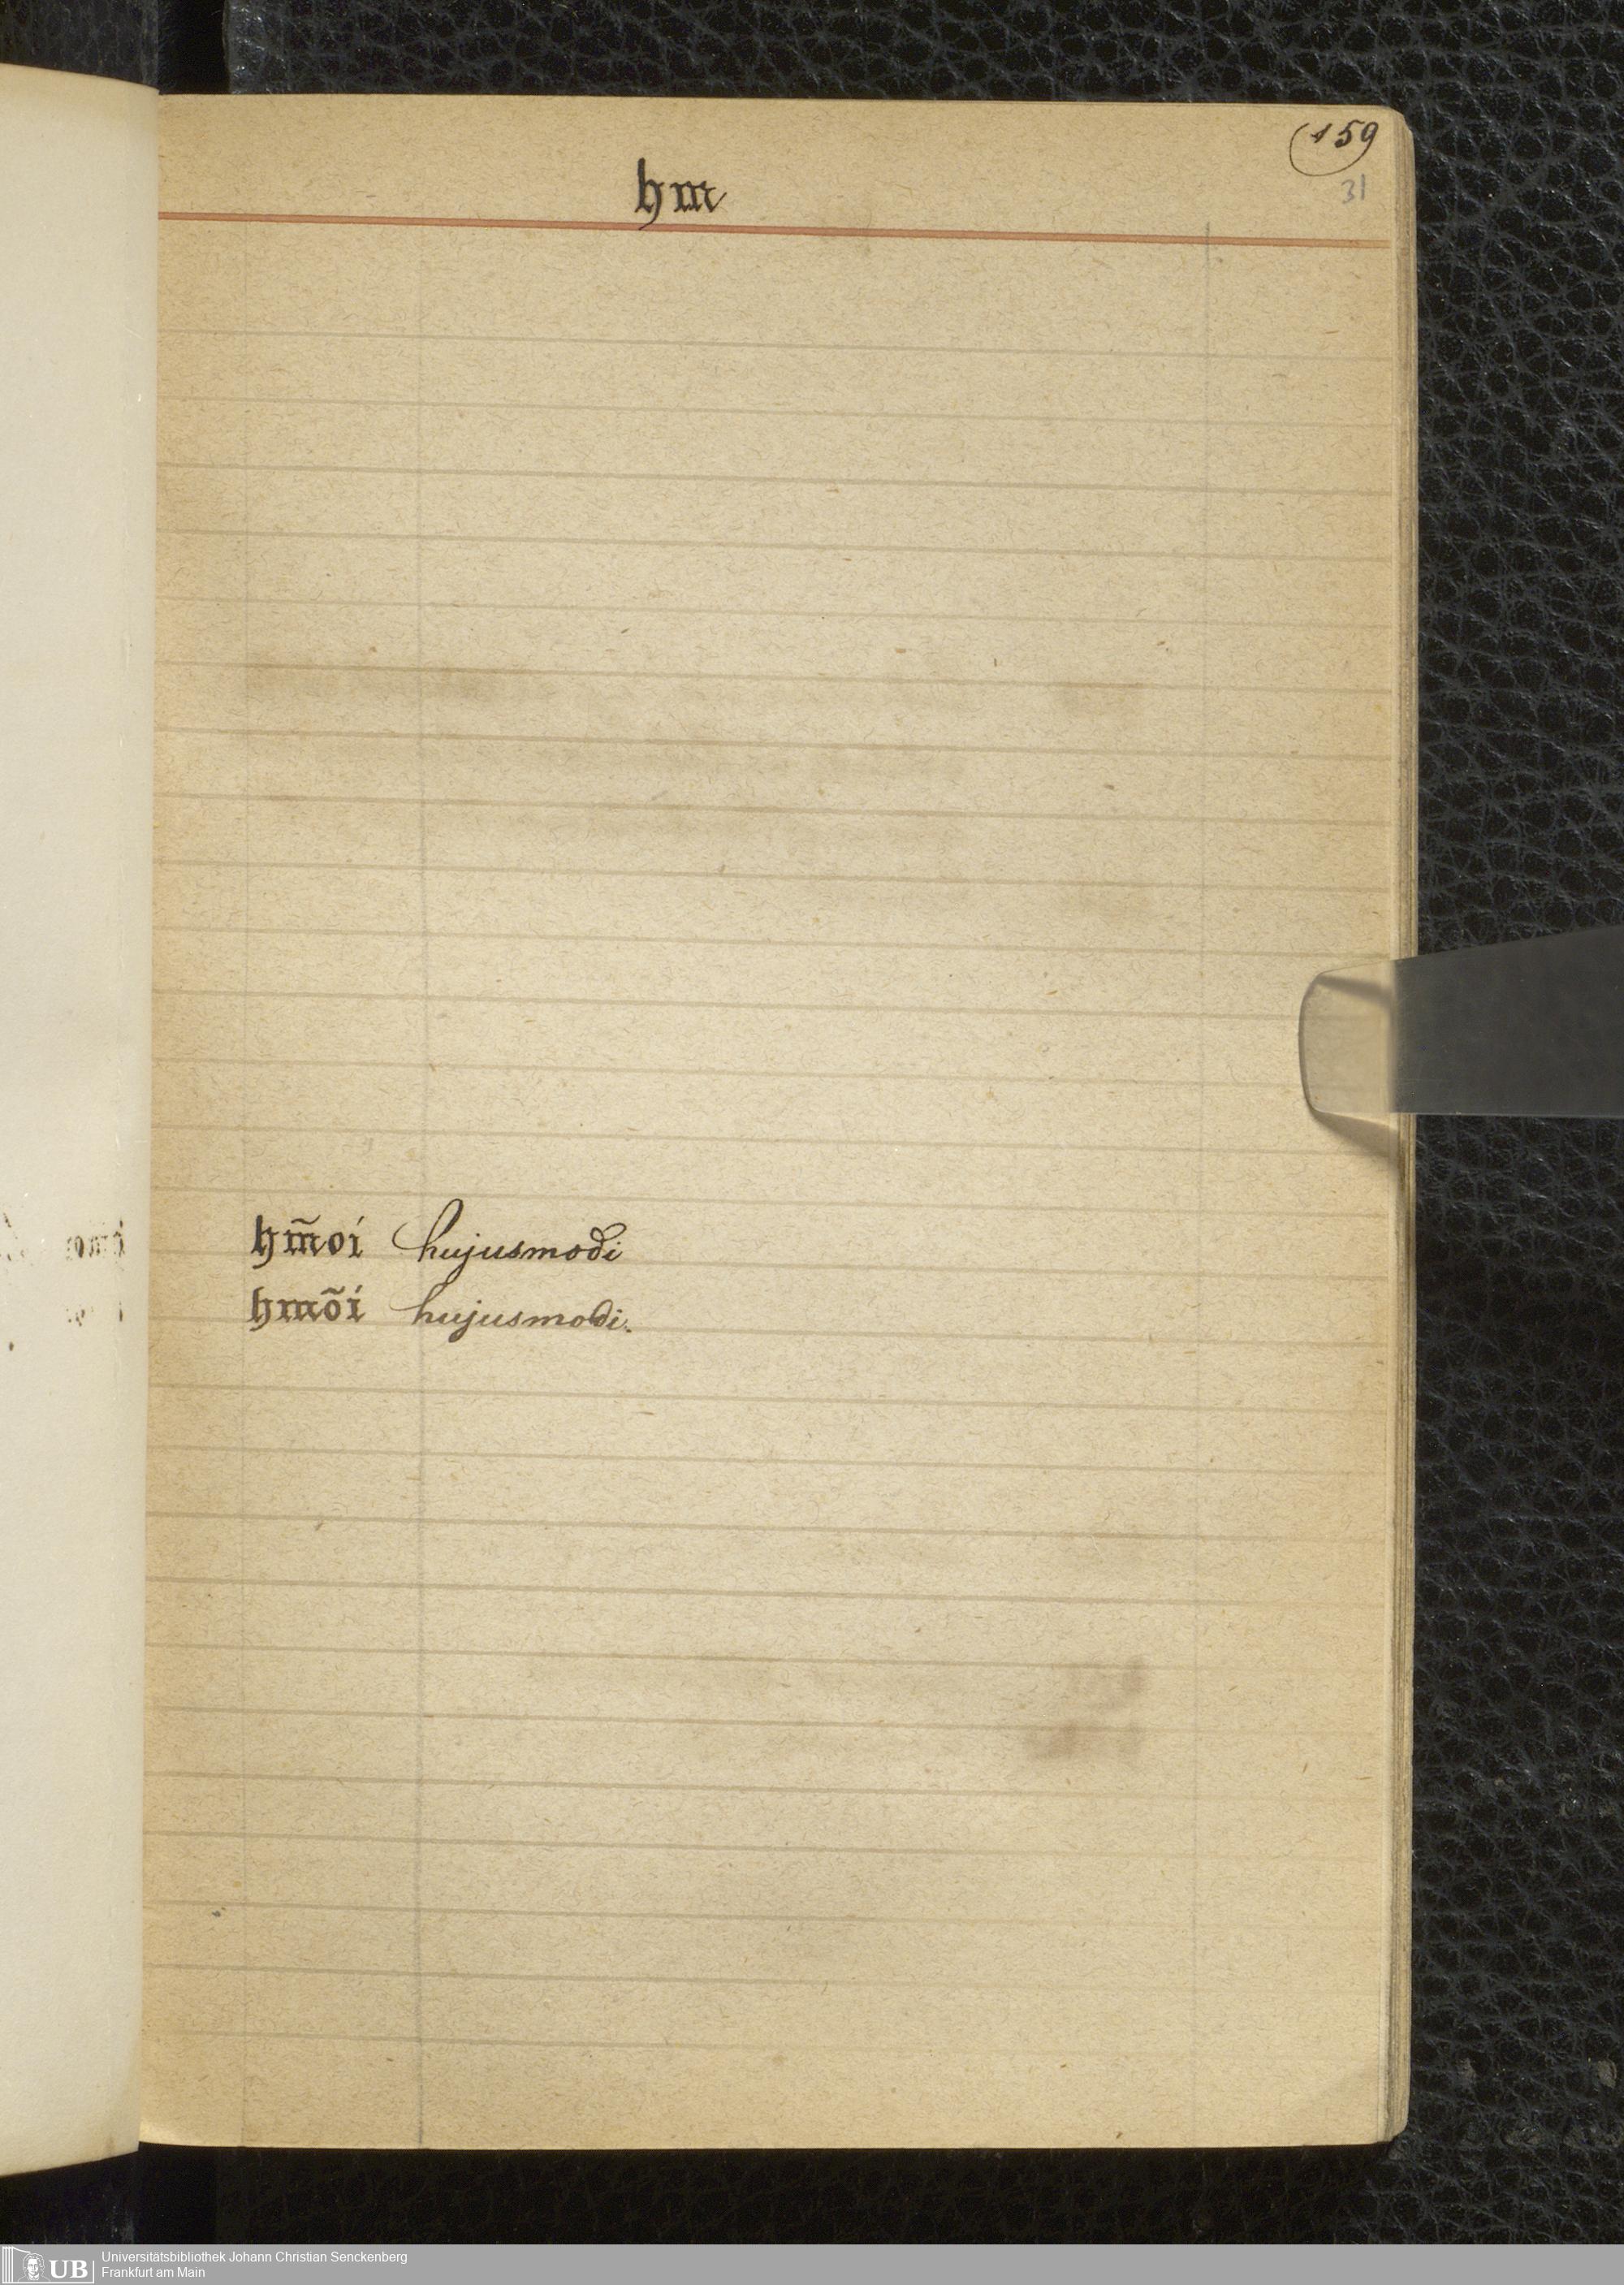 159
31
hm
hm̃oi hujusmodi
hmõi hujusmodi.
UB Universitätsbibliothek Johann Christian Senckenberg
Frankfurt am Main